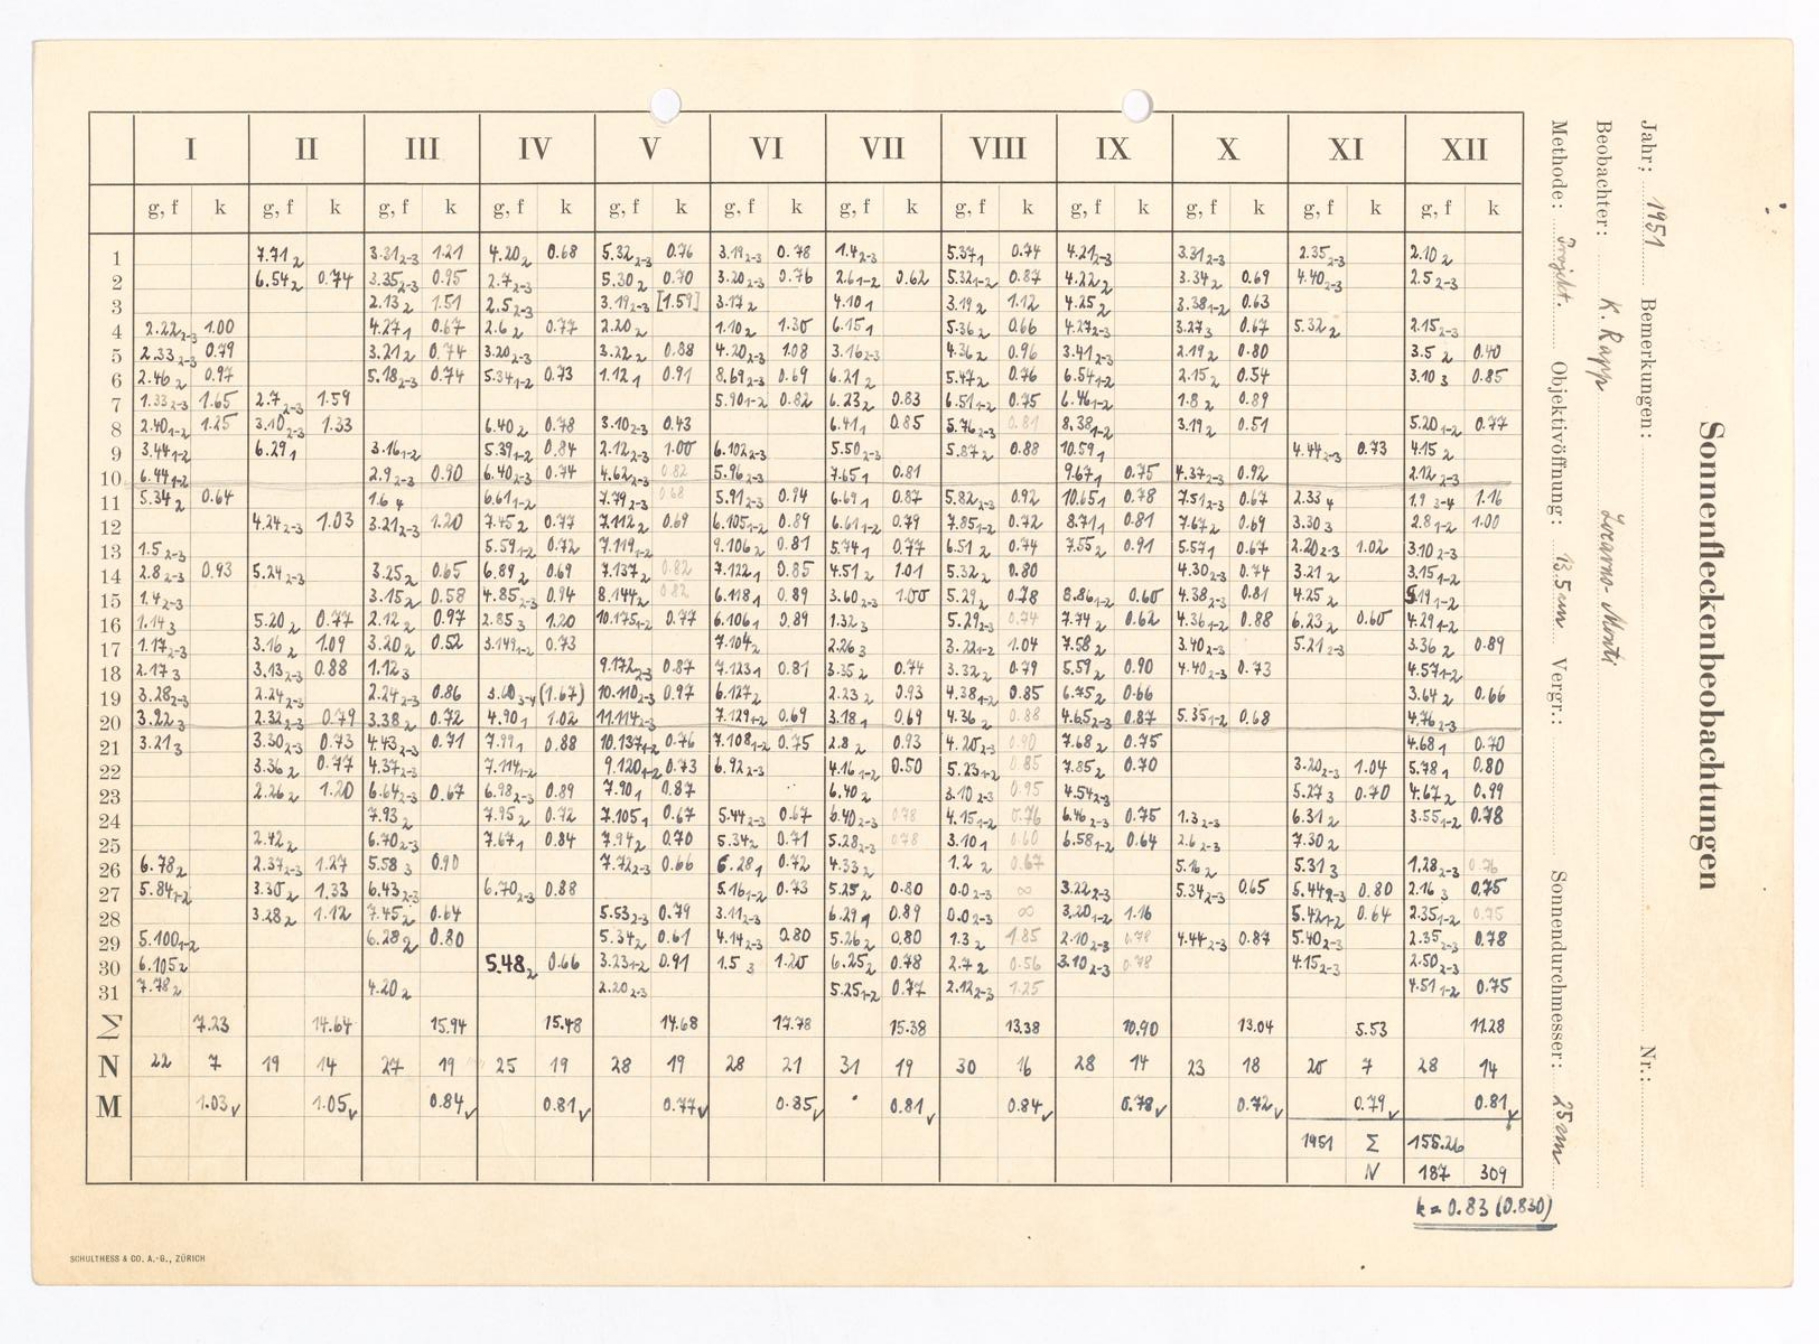 Sonnenfleckenbeobachtungen
Jahr: 1951 Bemerkungen: Nr.:
Beobachter: K. Rapp Locarno-Monti
Methode: Projekt. Objektivöffnung: 13.5 cm Vergr.: Sonnendurchmesser: 25 cm
I II III IV V VI VII VIII IX X XI XII
g, f k g, f k g, f k g, f k g, f k g, f k g, f k g, f k g, f k g, f k g, f k g, f k
1 7.71 2 3.31 2-3 1.21 4.20 2 0.68 5.32 2-3 0.76 3.19 2-3 0.78 1.4 2-3 5.37 1 0.74 4.21 2-3 3.31 2-3 2.35 2-3 2.10 2
2 6.54 2 0.74 3.35 2-3 0.95 2.7 2-3 5.30 2 0.70 3.20 2-3 0.76 2.6 1-2 0.62 5.32 1-2 0.87 4.22 2 3.34 2 0.69 4.40 2-3 2.5 2-3
3 2.13 2 1.51 2.5 2-3 3.19 2-3 [1.59] 3.17 2 4.10 1 3.19 2 1.12 4.25 2 3.38 1-2 0.63
4 2.22 2-3 1.00 4.27 1 0.67 2.6 2 0.77 2.20 2 1.10 2 1.30 6.15 1 5.36 2 0.66 4.27 2-3 3.27 3 0.67 5.32 2 2.15 2-3
5 2.33 2-3 0.79 3.21 2 0.74 3.20 2-3 3.22 2 0.88 4.20 2-3 1.08 3.16 2-3 4.36 2 0.96 3.41 2-3 2.19 2 0.80 3.5 2 0.40
6 2.46 2 0.97 5.18 2-3 0.74 5.34 1-2 0.73 1.12 1 0.91 8.69 2-3 0.69 6.21 2 5.47 2 0.76 6.54 1-2 2.15 2 0.54 3.10 3 0.85
7 1.33 2-3 1.65 2.7 2-3 1.59 5.90 1-2 0.82 6.23 2 0.83 6.51 1-2 0.75 6.46 1-2 1.8 2 0.89
8 2.40 1-2 1.25 3.10 2-3 1.33 6.40 2 0.78 3.10 2-3 0.43 6.41 1 0.85 5.76 2-3 0.81 8.38 1-2 3.19 2 0.51 5.20 1-2 0.77
9 3.44 1-2 6.29 1 3.16 1-2 5.39 1-2 0.84 2.12 2-3 1.00 6.102 2-3 5.50 2-3 5.87 2 0.88 10.59 1 4.44 2-3 0.73 4.15 2
10 6.44 1-2 2.9 2-3 0.90 6.40 2-3 0.74 4.62 2-3 0.82 5.96 2-3 7.65 1 0.81 9.67 1 0.75 4.37 2-3 0.92 2.12 2-3
11 5.34 2 0.64 1.6 4 6.61 1-2 7.79 2-3 0.68 5.91 2-3 0.94 6.69 1 0.87 5.82 2-3 0.92 10.65 1 0.78 7.51 2-3 0.67 2.33 4 1.9 3-4 1.16
12 4.24 2-3 1.03 3.21 2-3 1.20 7.45 2 0.77 7.112 2 0.69 6.105 1-2 0.89 6.61 1-2 0.79 7.85 1-2 0.72 8.71 1 0.81 7.67 2 0.69 3.30 3 2.8 1-2 1.00
13 1.5 2-3 5.59 1-2 0.72 7.119 1-2 9.106 2 0.81 5.74 1 0.77 6.51 2 0.74 7.55 2 0.91 5.57 1 0.67 2.20 2-3 1.02 3.10 2-3
14 2.8 2-3 0.93 5.24 2-3 3.25 2 0.65 6.89 2 0.69 7.137 2 0.82 7.122 1 0.85 4.51 2 1.01 5.32 2 0.80 4.30 2-3 0.74 3.21 2 3.15 1-2
15 1.4 2-3 3.15 2 0.58 4.85 2-3 0.94 8.144 2 0.82 6.118 1 0.89 3.60 2-3 1.00 5.29 2 0.78 8.86 1-2 0.60 4.38 2-3 0.81 4.25 2 5.19 1-2
16 1.14 3 5.20 2 0.77 2.12 2 0.97 2.85 3 1.20 10.175 1-2 0.77 6.106 1 0.89 1.32 3 5.29 2-3 0.74 7.74 2 0.62 4.36 1-2 0.88 6.23 2 0.60 4.29 1-2
17 1.17 2-3 3.16 2 1.09 3.20 2 0.52 3.149 1-2 0.73 7.104 2 2.26 3 3.22 1-2 1.04 7.58 2 3.40 2-3 5.21 2-3 3.36 2 0.89
18 2.17 3 3.13 2-3 0.88 1.12 3 9.172 2-3 0.87 7.123 1 0.81 3.35 2 0.74 3.32 2 0.79 5.59 2 0.90 4.40 2-3 0.73 4.57 1-2
19 3.28 2-3 2.24 2-3 2.24 2-3 0.86 3.60 3-4 (1.67) 10.110 2-3 0.97 6.127 2 2.23 2 0.93 4.38 1-2 0.85 6.75 2 0.66 3.64 2 0.66
20 3.22 3 2.32 2-3 0.79 3.38 2 0.72 4.90 1 1.02 11.114 2-3 7.129 1-2 0.69 3.18 1 0.69 4.36 2 0.88 4.65 2-3 0.87 5.35 1-2 0.68 4.76 2-3
21 3.21 3 3.30 2-3 0.73 4.43 2-3 0.71 7.99 1 0.88 10.137 1-2 0.76 7.108 1-2 0.75 2.8 2 0.93 4.20 2-3 0.90 7.68 2 0.75 4.68 1 0.70
22 3.36 2 0.77 4.37 2-3 7.114 1-2 9.120 1-2 0.73 6.92 2-3 4.16 1-2 0.50 5.23 1-2 0.85 7.85 2 0.70 3.20 2-3 1.04 5.78 1 0.80
23 2.26 2 1.20 6.64 2-3 0.67 6.98 2-3 0.89 7.90 1 0.87 6.40 2 3.10 2-3 0.95 4.54 2-3 5.27 3 0.70 4.67 2 0.99
24 7.93 2 7.95 2 0.72 7.105 1 0.67 5.44 2-3 0.67 6.40 2-3 0.78 4.15 1-2 0.76 6.46 2-3 0.75 1.3 2-3 6.31 2 3.55 1-2 0.78
25 2.42 2 6.70 2-3 7.67 1 0.84 7.94 2 0.70 5.34 2 0.71 5.28 2-3 0.78 3.10 1 0.60 6.58 1-2 0.64 2.6 2-3 7.30 2
26 6.78 2 2.37 2-3 1.27 5.58 3 0.90 7.72 2-3 0.66 6.28 1 0.72 4.33 2 1.2 2 0.67 5.16 2 5.31 3 1.28 2-3 0.76
27 5.84 1-2 3.30 2 1.33 6.43 2-3 6.70 2-3 0.88 5.16 1-2 0.73 5.25 2 0.80 0.0 2-3 ∞ 3.22 2-3 5.34 2-3 0.65 5.44 2-3 0.80 2.16 3 0.75
28 3.28 2 1.12 7.45 2 0.64 5.53 2-3 0.79 3.11 2-3 6.29 1 0.89 0.0 2-3 ∞ 3.20 1-2 1.16 5.42 1-2 0.64 2.35 1-2 0.75
29 5.100 1-2 6.28 2 0.80 5.34 2 0.61 4.14 2-3 0.80 5.26 2 0.80 1.3 2 1.85 2.10 2-3 0.78 4.44 2-3 0.87 5.40 2-3 2.35 2-3 0.78
30 6.105 2 5.48 2 0.66 3.23 1-2 0.91 1.5 3 1.20 6.25 2 0.78 2.7 2 0.56 3.10 2-3 0.78 4.15 2-3 2.50 2-3
31 7.78 2 4.20 2 2.20 2-3 5.25 1-2 0.77 2.12 2-3 1.25 4.51 1-2 0.75
Σ 7.23 14.64 15.94 15.48 14.68 17.78 15.38 13.38 10.90 13.04 5.53 11.28
N 22 7 19 14 27 19 25 19 28 19 28 21 31 19 30 16 28 14 23 18 20 7 28 14
M 1.03 1.05 0.84 0.81 0.77 0.85 0.81 0.84 0.78 0.72 0.79 0.81
1951 Σ 155.26
N 187 309
k = 0.83 (0.830)
SCHULTHESS & CO. A.-G., ZÜRICH